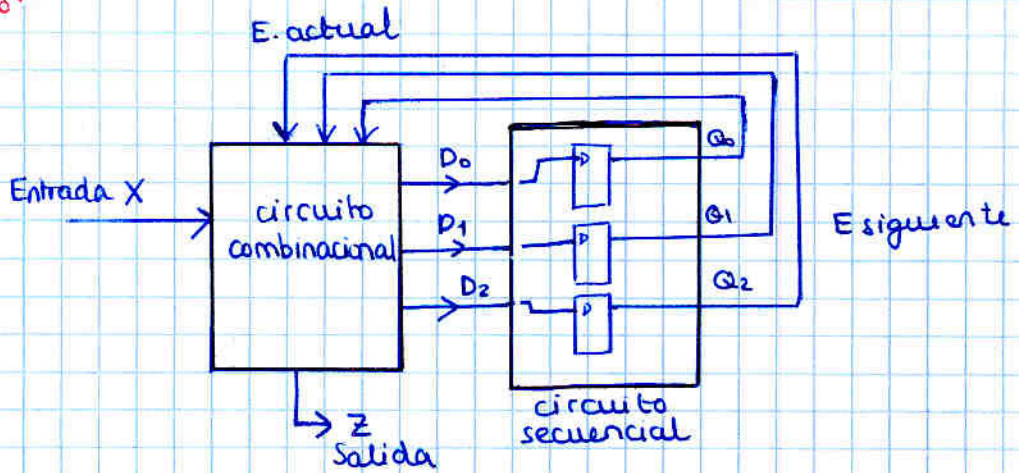 E. actual
Entrada X
circuito
combinacional
D0
D1
D2
D
D
D
Q0
Q1
Q2
E siguiente
circuito
secuencial
Z
Salida